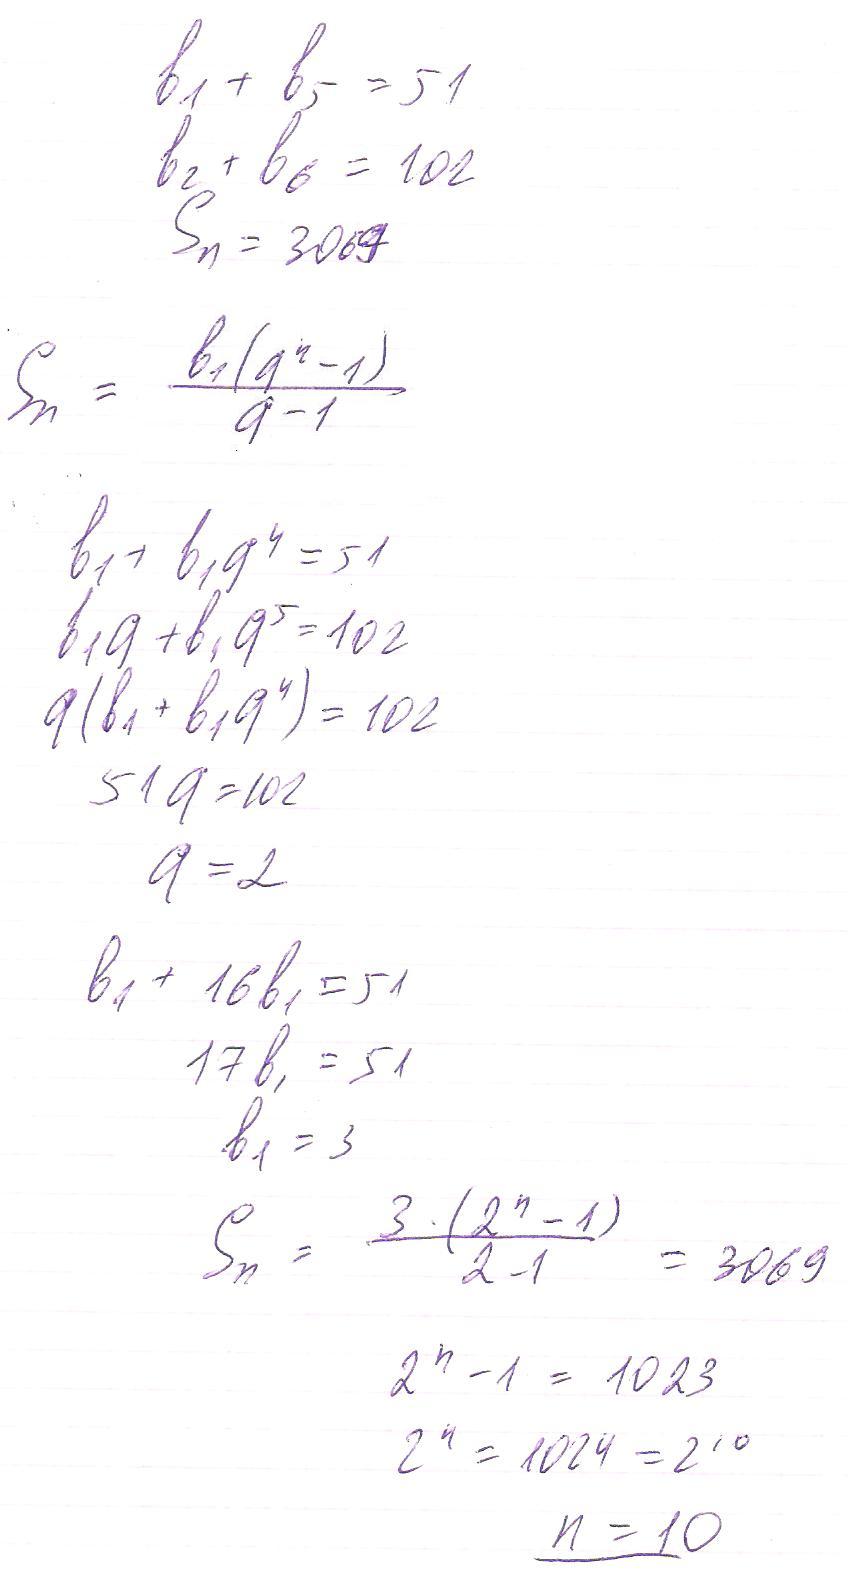 b₁ + b₅ = 51
b₂ + b₆ = 102
Sₙ = 3069
Sₙ = b₁(qⁿ - 1) / q - 1
b₁ + b₁q⁴ = 51
b₁q + b₁q⁵ = 102
q(b₁ + b₁q⁴) = 102
51q = 102
q = 2
b₁ + 16b₁ = 51
17b₁ = 51
b₁ = 3
Sₙ = 3·(2ⁿ - 1) / 2 - 1 = 3069
2ⁿ - 1 = 1023
2ⁿ = 1024 = 2¹⁰
n = 10